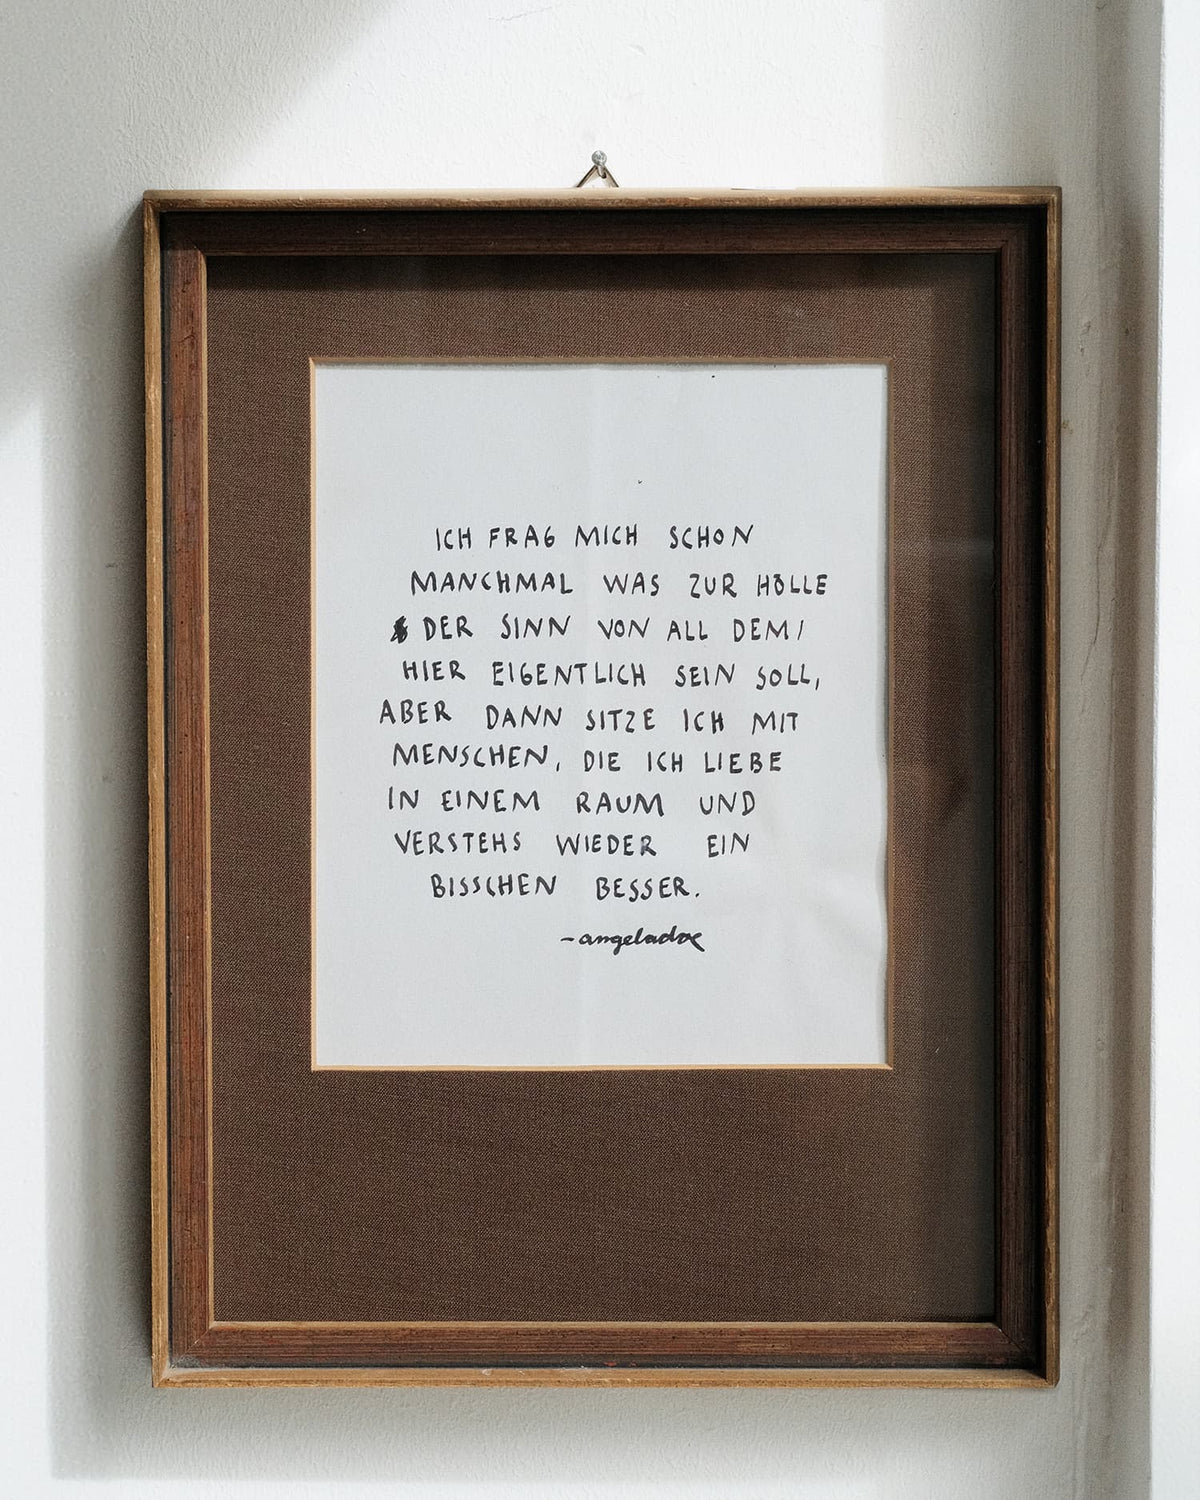 ICH FRAG MICH SCHON
MANCHMAL WAS ZUR HÖLLE
DER SINN VON ALL DEM
HIER EIGENTLICH SEIN SOLL,
ABER DANN SITZE ICH MIT
MENSCHEN, DIE ICH LIEBE
IN EINEM RAUM UND
VERSTEHS WIEDER EIN
BISSCHEN BESSER.
-angeladoe